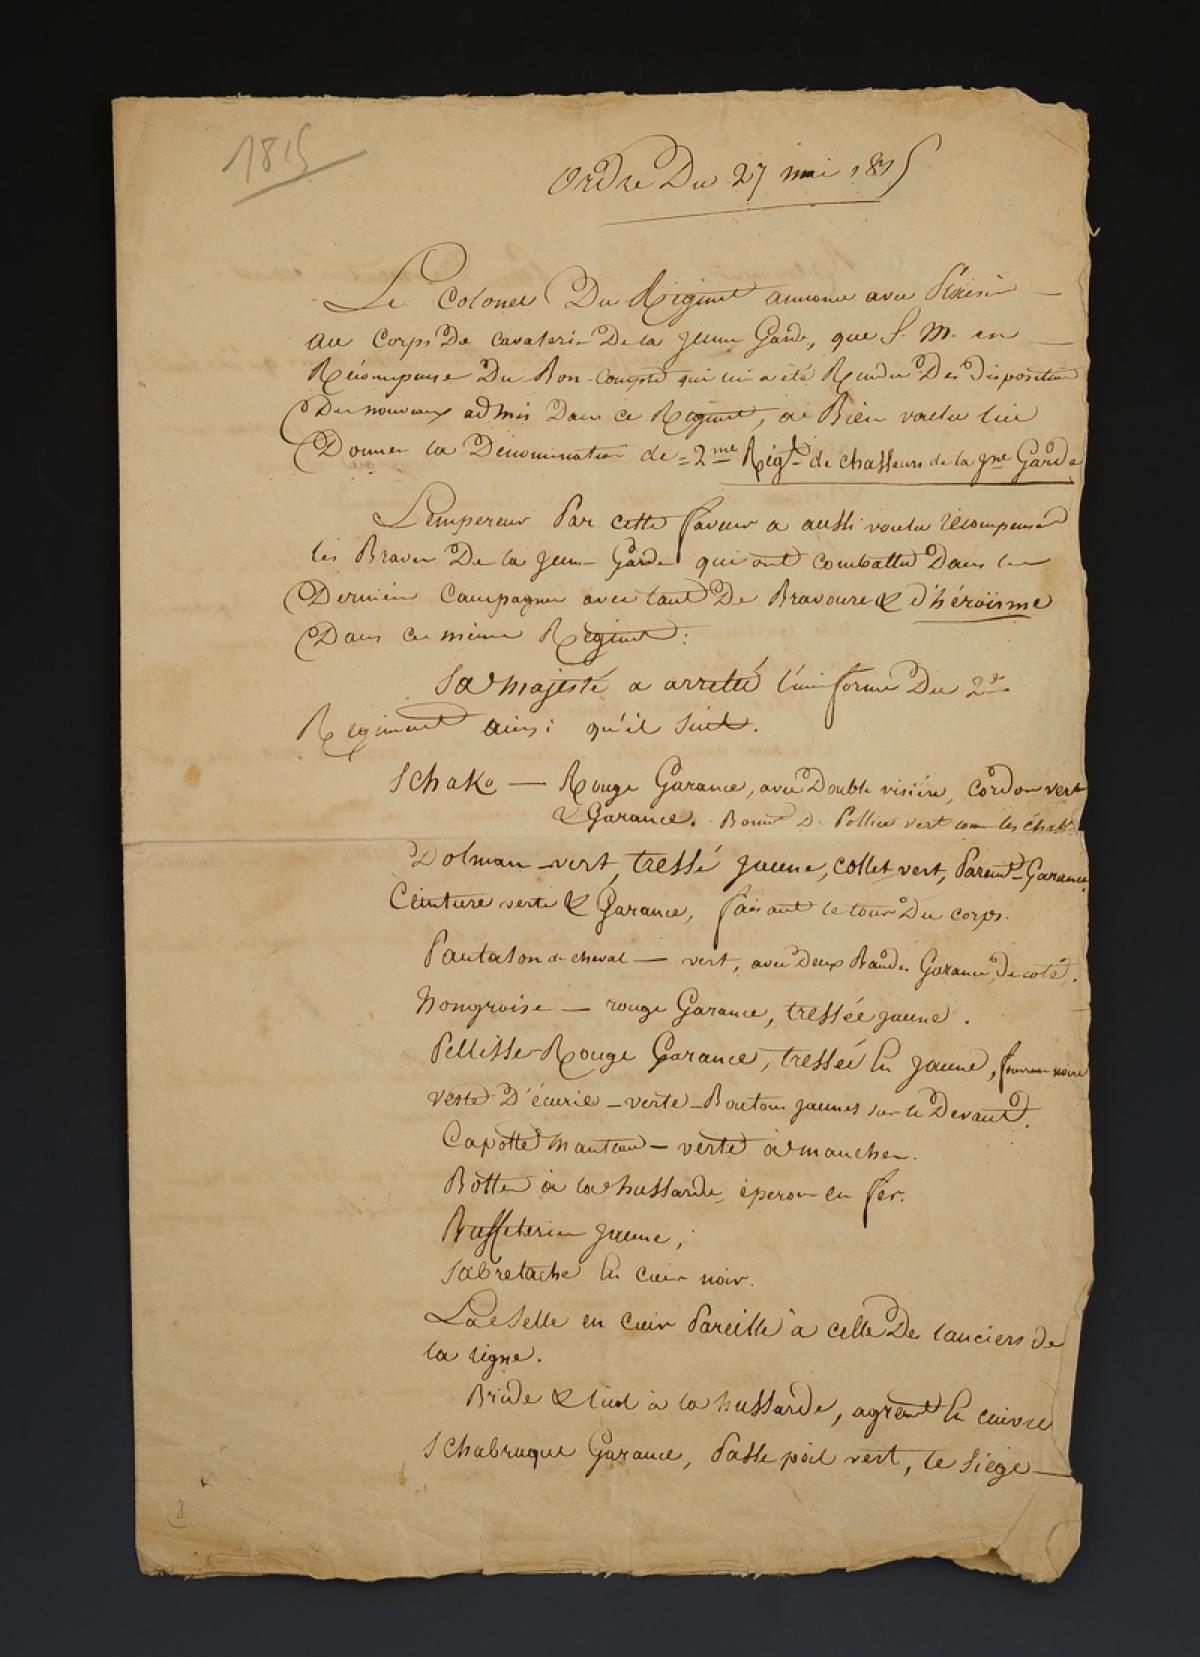 1815
Ordre Du 27 mai 1815
Le Colonel Du Régiment annonce avec Plaisir
au Corps De Cavalerie De la Jeune Garde, que S. M. en
Récompense Du Bon-Compte qui lui a été Rendu Des Dispositions
Des nouveaux admis Dans ce Régiment, a Bien voulu lui
Donner la Dénomination de = 2me Regt de chasseurs de la jne Garde
L'empereur Par cette faveur a aussi voulu récompenser
les Braves De la jeune Garde qui ont combattu Dans les
Dernieres Campagnes avec tant De Bravoure & d'héroïsme
Dans ce même Régiment :
Sa majesté a arretté l'uniforme Du 2e
Regiment ainsi qu'il suit.
Schako — Rouge Garance, avec Double visière, cordon vert
& Garance. Bonnet De Pollice vert comme les chass
Dolman - vert, tressé jaune, collet vert, Paremt Garance
Ceinture verte & Garance, faisant le tour Du corps.
Pantalon de cheval — vert, avec Deux Bandes Garance, De coté.
Hongroise — rouge Garance, tressée jaune.
Pellisse - Rouge Garance, tressée en jaune, fourrure noire
veste D'écurie - verte - Boutons jaunes sur le Devant.
Capotte Manteau - verte à manches.
Bottes à la hussarde, éperons en fer.
Buffleteries jaune,
Sabretache en cuir noir.
La Selle en cuir Pareille à celle De lanciers de
la ligne.
Bride & licol à la hussarde, agrémt en cuivre
Schabraque Garance, Passe poil vert, le siège